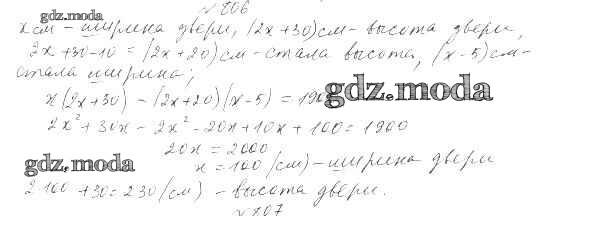 gdz.moda
№ 706
x см – ширина двери, (2x+30) см – высота двери,
2x+30-10 = (2x+20) см – стала высота, (x-5) см –
стала ширина;
x(2x+30) – (2x+20)(x-5) = 190
gdz.moda
2x² + 30x – 2x² – 20x + 10x + 100 = 1900
20x = 2000
gdz.moda
x = 100 (см) – ширина двери
2·100 + 30 = 230 (см) – высота двери.
№ 707